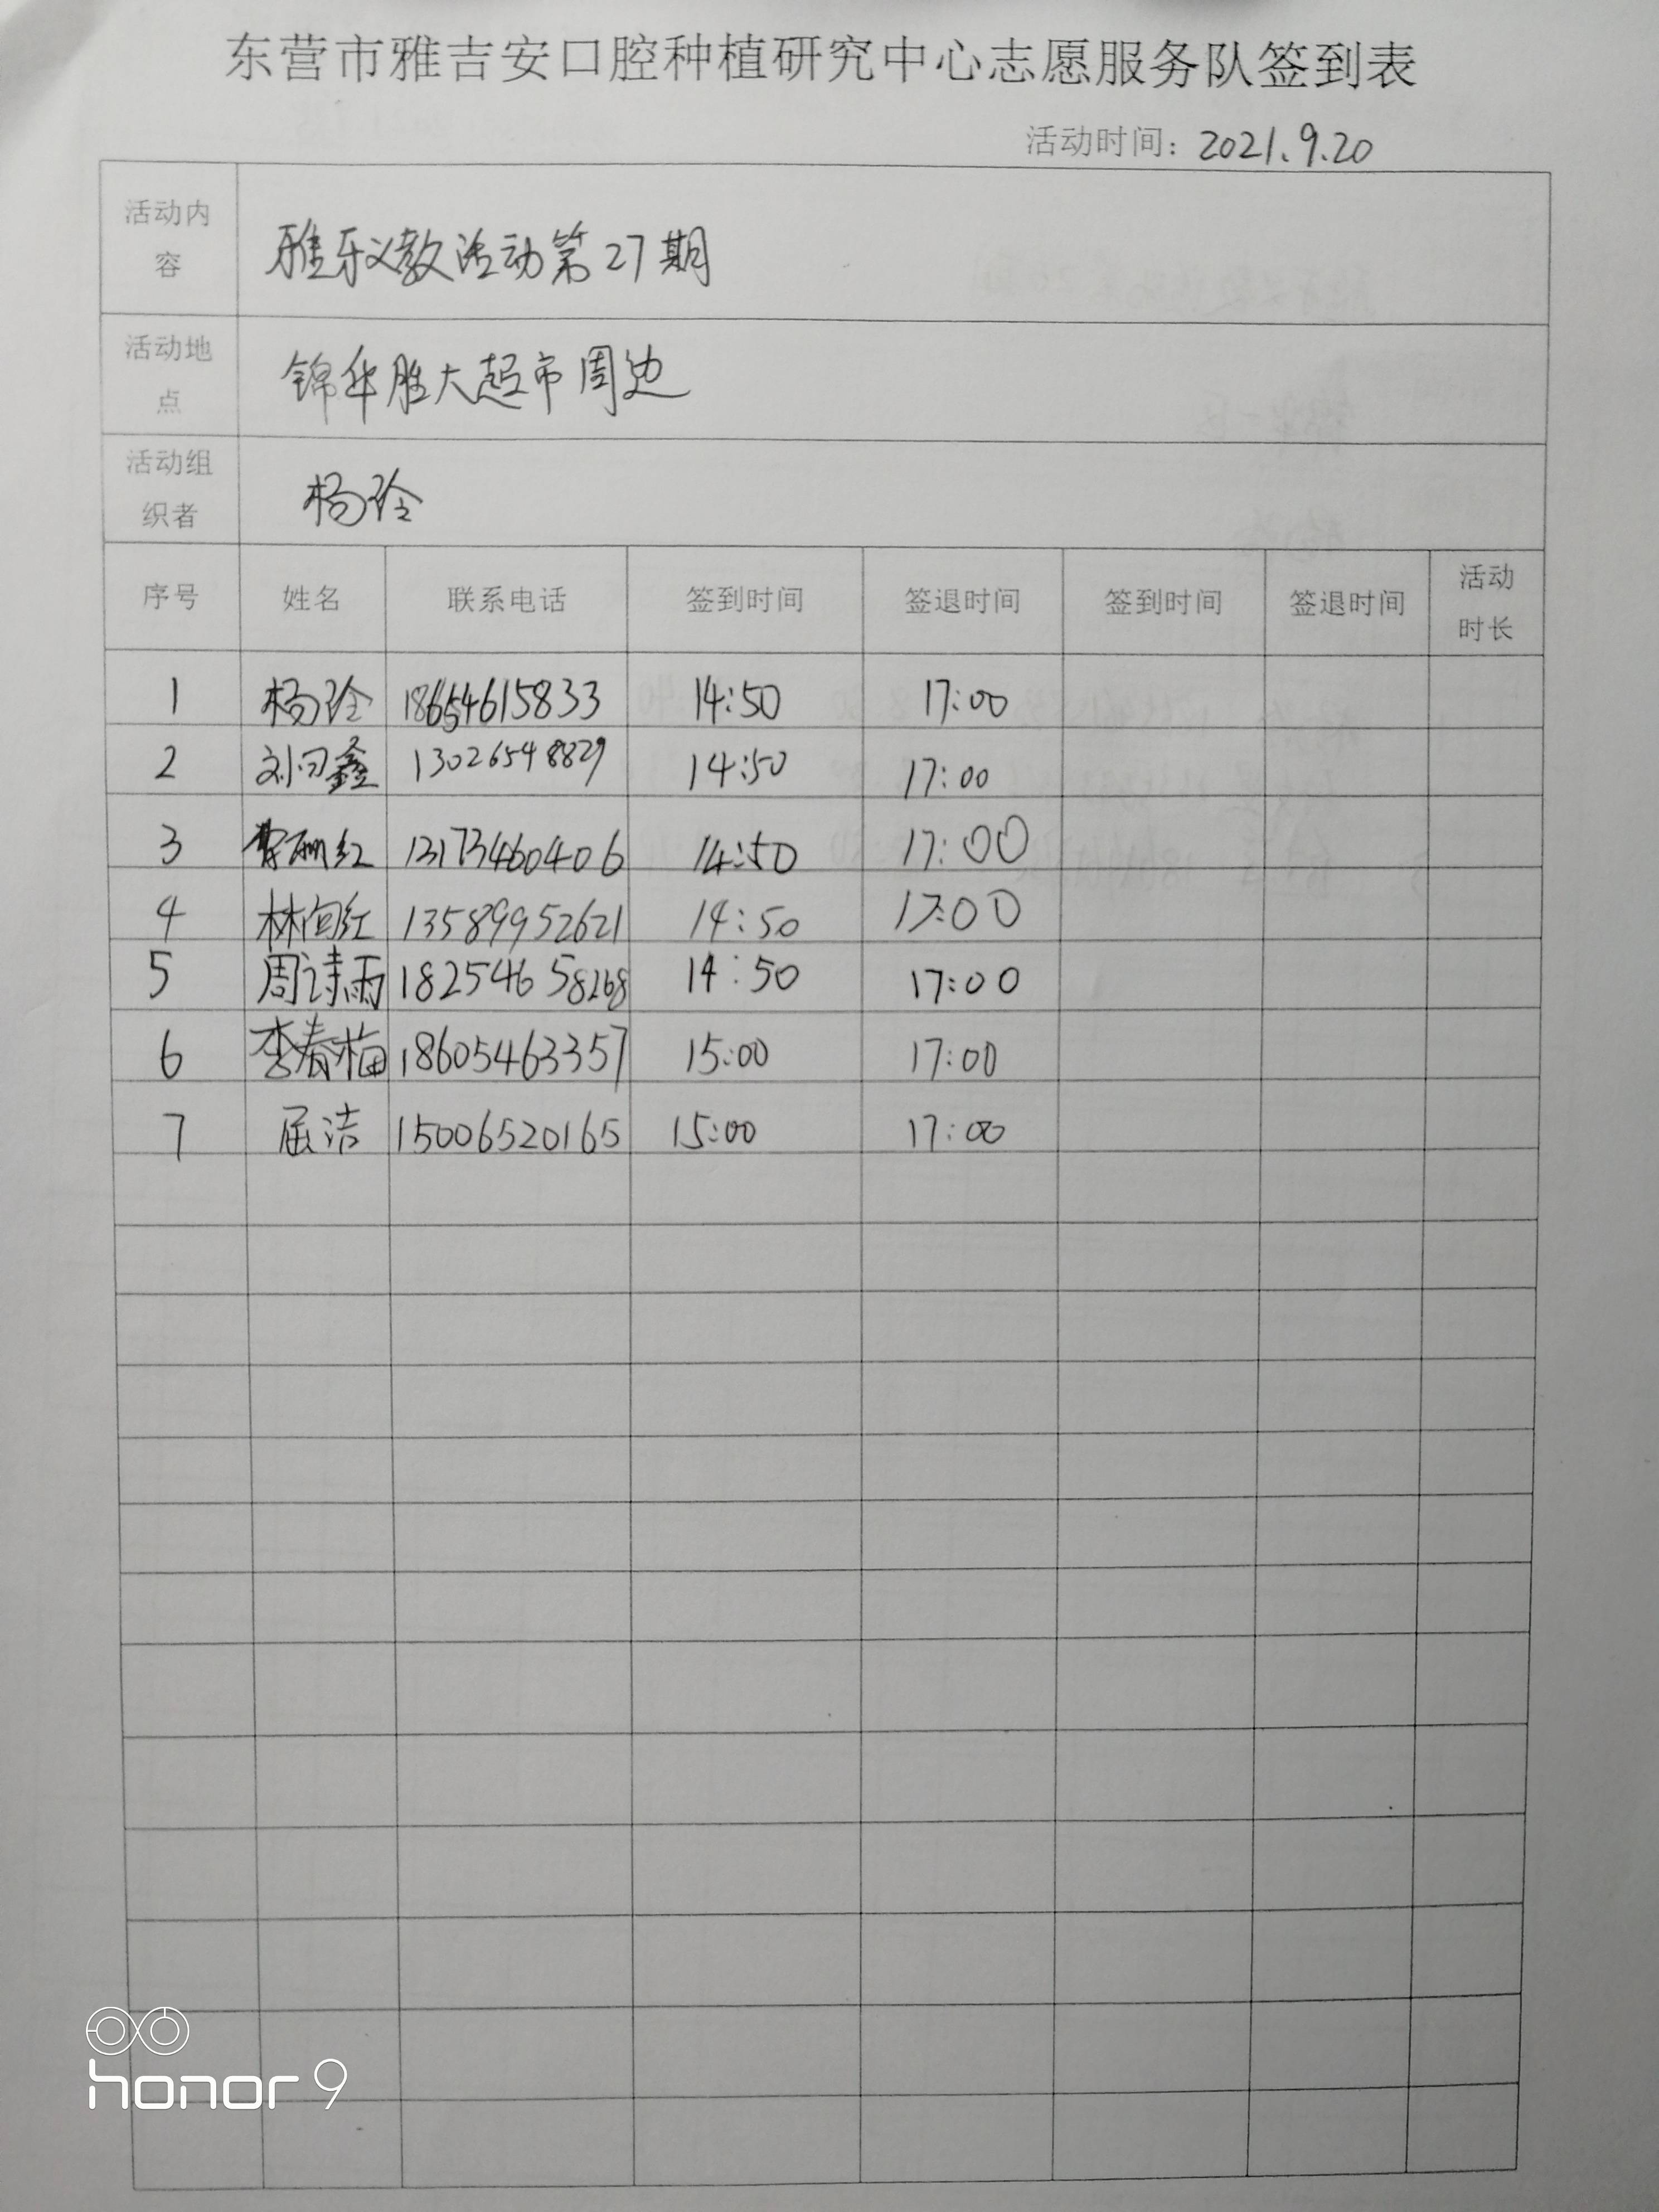 东营市雅吉安口腔种植研究中心志愿服务队签到表
活动时间：2021.9.20
活动内容 雅乐义教活动第27期
活动地点 锦华胜大超市周边
活动组织者 杨玲
序号 姓名 联系电话 签到时间 签退时间 签到时间 签退时间 活动时长
1 杨玲 18654615833 14:50 17:00
2 刘 鑫 13026548829 14:50 17:00
3 红 13173460406 14:50 17:00
4 林 红 13589952621 14:50 17:00
5 周诗雨 18254658268 14:50 17:00
6 李春梅 18605463357 15:00 17:00
7 屈洁 15006520165 15:00 17:00
honor 9